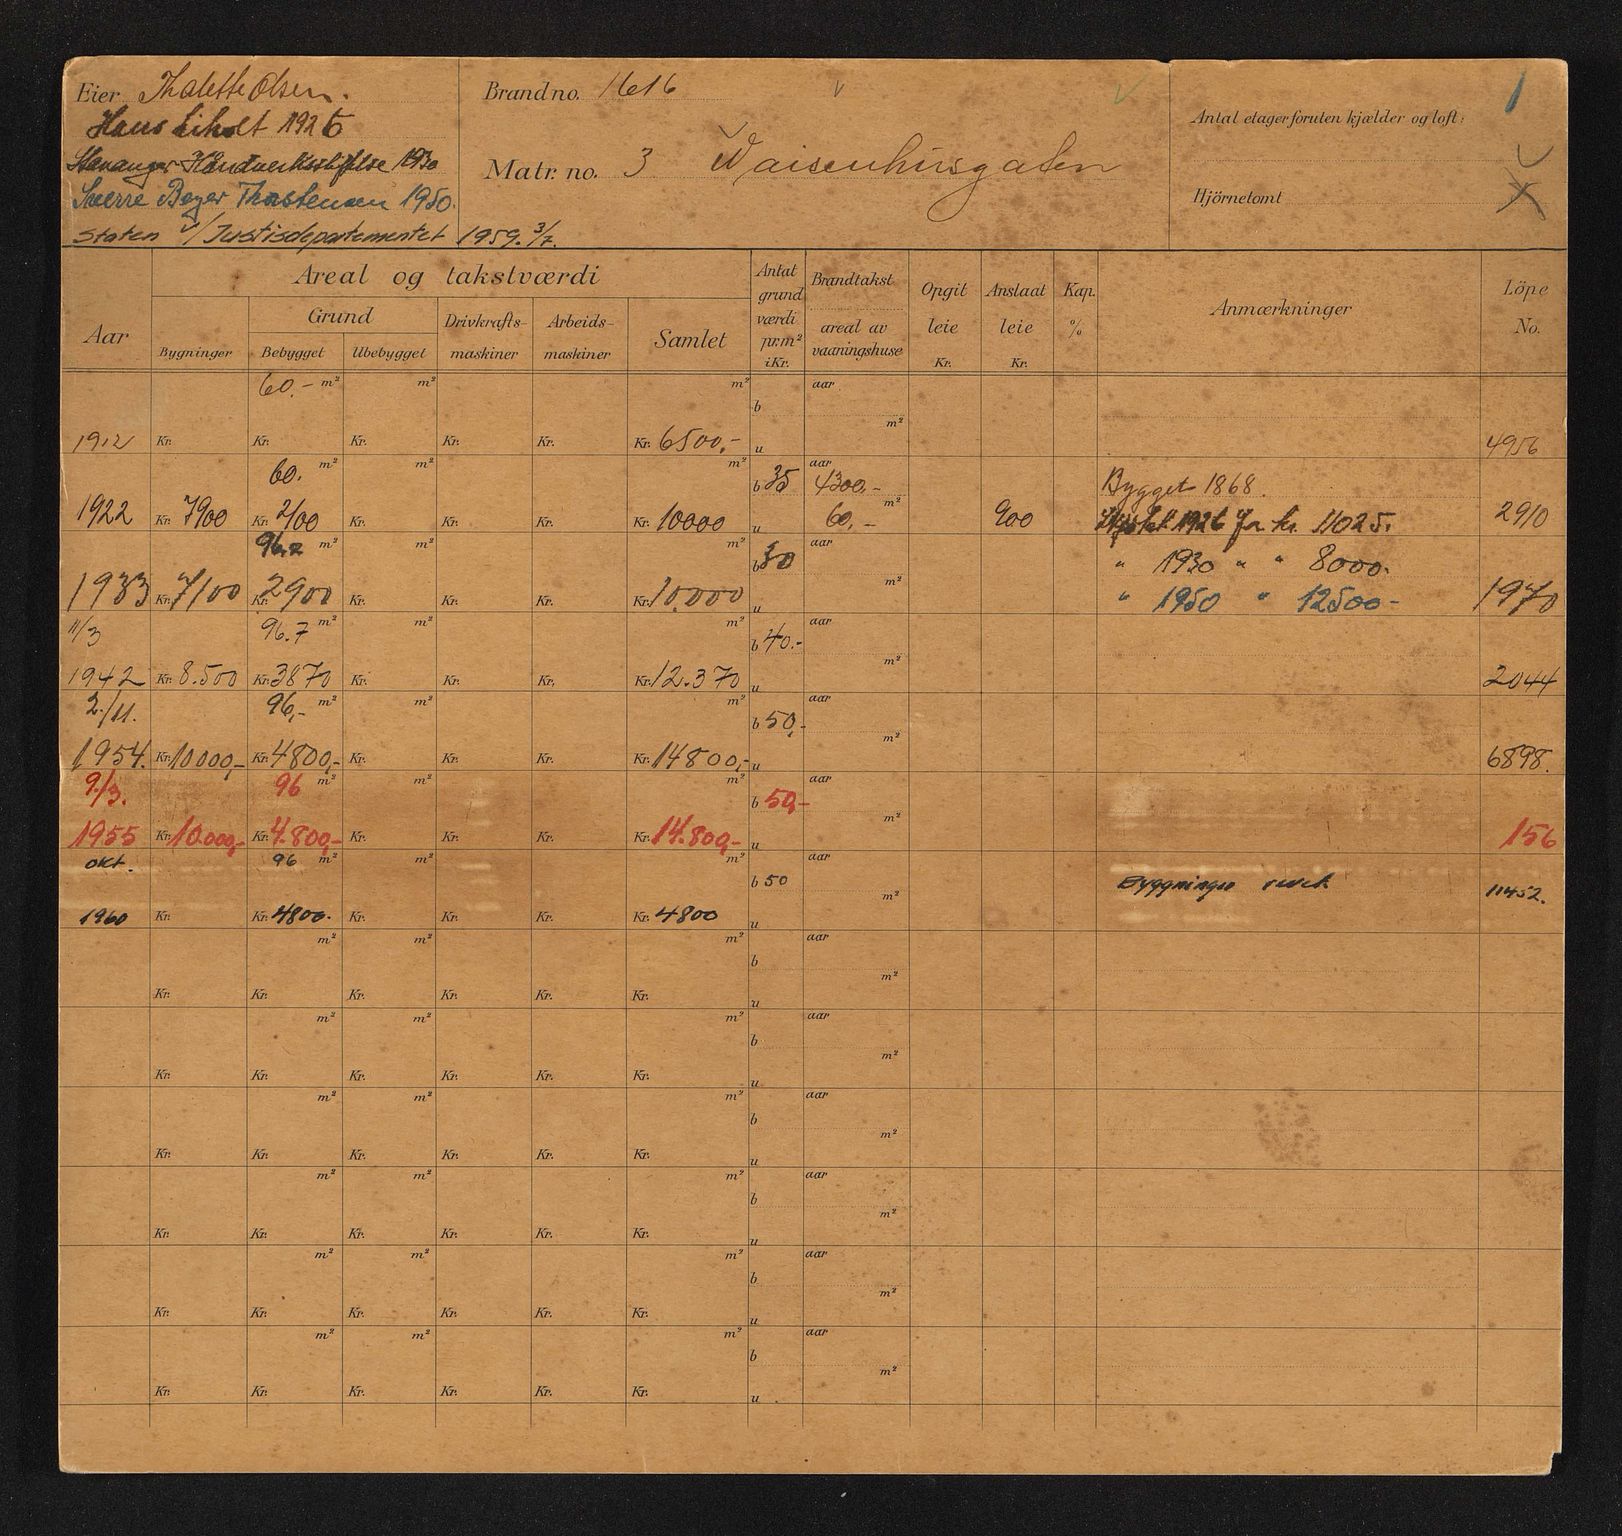 Eier Thalette Olsen.
Hans Liholt 1926
Stavanger Håndverksstiftelse 1930
Sverre Beyer Thorstensen 1950.
Staten v/Justisdepartementet 1959. 3/7.
Brand no. 1616
Matr. no. 3 Waisenhusgaten
Antal etager foruten kjælder og loft: 1
Hjörnetomt X
Aar
Areal og takstværdi
Bygninger
Grund
Bebygget Ubebygget
Drivkrafts-maskiner
Arbeids-maskiner
Samlet
Antat grund værdi pr.m² i Kr.
Brandtakst
areal av vaaningshuse
Opgit leie Kr.
Anslaat leie Kr.
Kap. %
Anmærkninger
Löpe No.
60.- m² m² m² aar
b
m²
1912 Kr. Kr. Kr. Kr. Kr. Kr. 6500,- u 4956
60. m² m² m² aar
b 35 4300,- Bygget 1868.
m²
1922 Kr. 7900 Kr. 2100 Kr. Kr. Kr. Kr. 10000 u 60,- 900 1926 for kr. 11025. 2910
96.7 m² m² m² aar
b 30 " 1930 " " 8000.
m²
1933 Kr. 7100 Kr. 2900 Kr. Kr. Kr. Kr. 10.000 u " 1950 " 12500- 1970
11/3 96.7 m² m² m² aar
b 40.-
m²
1942 Kr. 8.500 Kr. 3870 Kr. Kr. Kr. Kr. 12.370 u 2044
2./11. 96,- m² m² m² aar
b 50,-
m²
1954. Kr. 10000,- Kr. 4800,- Kr. Kr. Kr. Kr. 14800,- u 6898.
9./3. 96 m² m² m² aar
b 50,-
m²
1955 Kr. 10.000,- Kr. 4.800,- Kr. Kr. Kr. Kr. 14.800,- u 156
okt. 96 m² m² m² aar
b 50 Bygningen revet 11452.
m²
1960 Kr. Kr. 4800. Kr. Kr. Kr. Kr. 4800 u
m² m² m² aar
b
m²
Kr. Kr. Kr. Kr. Kr. Kr. u
m² m² m² aar
b
m²
Kr. Kr. Kr. Kr. Kr. Kr. u
m² m² m² aar
b
m²
Kr. Kr. Kr. Kr. Kr. Kr. u
m² m² m² aar
b
m²
Kr. Kr. Kr. Kr. Kr. Kr. u
m² m² m² aar
b
m²
Kr. Kr. Kr. Kr. Kr. Kr. u
m² m² m² aar
b
m²
Kr. Kr. Kr. Kr. Kr. Kr. u